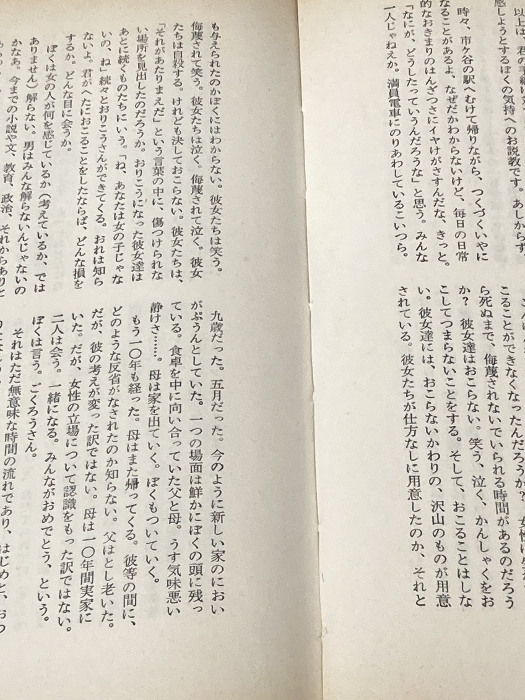 以上は、君の手
感しようとするぼくの気持へのお説教です。あしからず。
時々、市ケ谷の駅へむけて帰りながら、つくづくいやに
なることがあるよ。なぜだかわからないけど、毎日の日常
的なおきまりのはんざつさにイヤけがさすんだな、きっと。
「なにが、どうしたっていうんだろうな」と思う。みんな
一人じゃねえか。満員電車にのりあわしているこいつら。
こることができなくなったんだろうか。女性は
ら死ぬまで、侮蔑されないでいられる時間があるのだろう
か？　彼女達はおこらない。笑う、泣く、かんしゃくをお
こしてつまらないことをする。そして、おこることはしな
い。彼女達には、おこらないかわりの、沢山のものが用意
されている。彼女たちが仕方なしに用意したのか、それと
も与えられたのかぼくにはわからない。彼女たちは笑う。
侮蔑されて笑う。彼女たちは泣く。侮蔑されて泣く。彼女
たちは自殺する。けれども決しておこらない。彼女たちは、
「それがあたりまえだ」という言葉の中に、傷つけられな
い場所を見出したのだろうか。おりこうになった彼女達は
あとに続くものたちにいう。「ね、あなたは女の子じゃな
いの、ね」続々とおりこうさんができてくる。おれは知ら
ないよ。君がへたにおこることをしたならば、どんな損を
するか。どんな目に会うか。
ぼくは女の人が何を感じているか（考えているか、では
ありません）解らない。男はみんな解らないんじゃないの
かなあ。今までの小説や文、教育、政治、それからありと
九歳だった。五月だった。今のように新しい家のにおい
がぷうんとしていた。一つの場面は鮮かにぼくの頭に残っ
ている。食卓を中に向い合っていた父と母。うす気味悪い
静けさ……。母は家を出ていく。ぼくもついていく。
もう一〇年も経った。母はまた帰ってくる。彼等の間に、
どのような反省がなされたのか知らない。父はとし老いた。
だが、彼の考えが変った訳ではない。母は一〇年間実家に
いた。だが、女性の立場について認識をもった訳ではない。
二人は会う。一緒になる。みんながおめでとう、という。
ぼくは言う。ごくろうさん。
それはただ無意味な時間の流れであり、はじめと、おつ